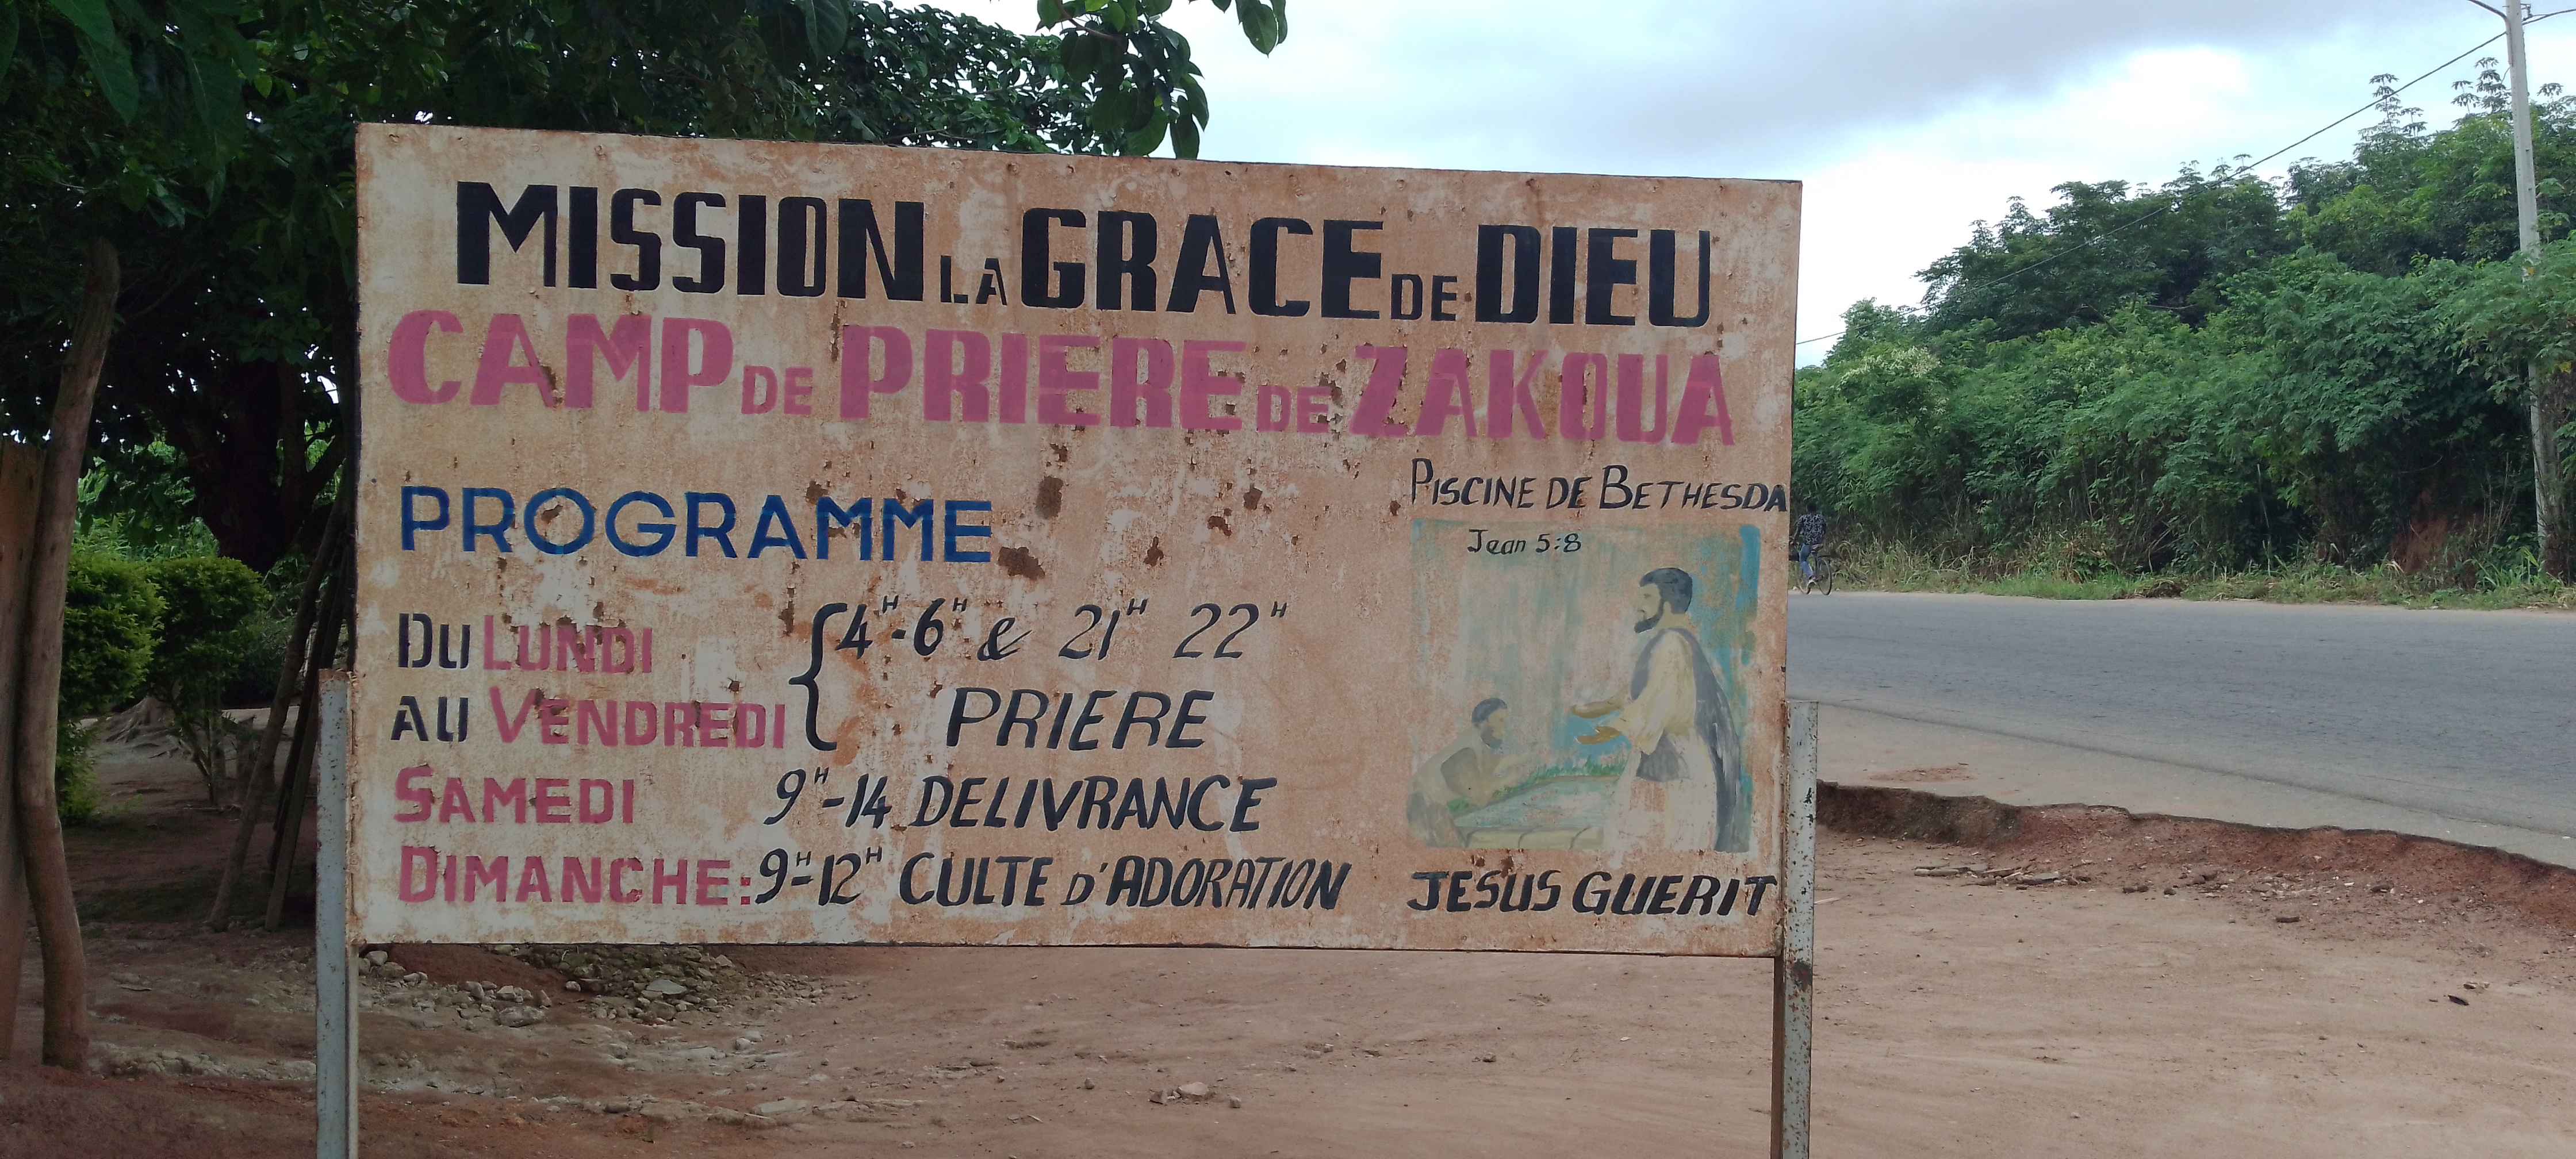 MISSION LA GRACE DE DIEU
CAMP DE PRIERE DE ZAKOUA
PROGRAMME
DU LUNDI
AU VENDREDI
4H-6H & 21H 22H
PRIERE
SAMEDI 9H-14 DELIVRANCE
DIMANCHE: 9H-12H CULTE D'ADORATION
PISCINE DE BETHESDA
Jean 5:8
JESUS GUERIT